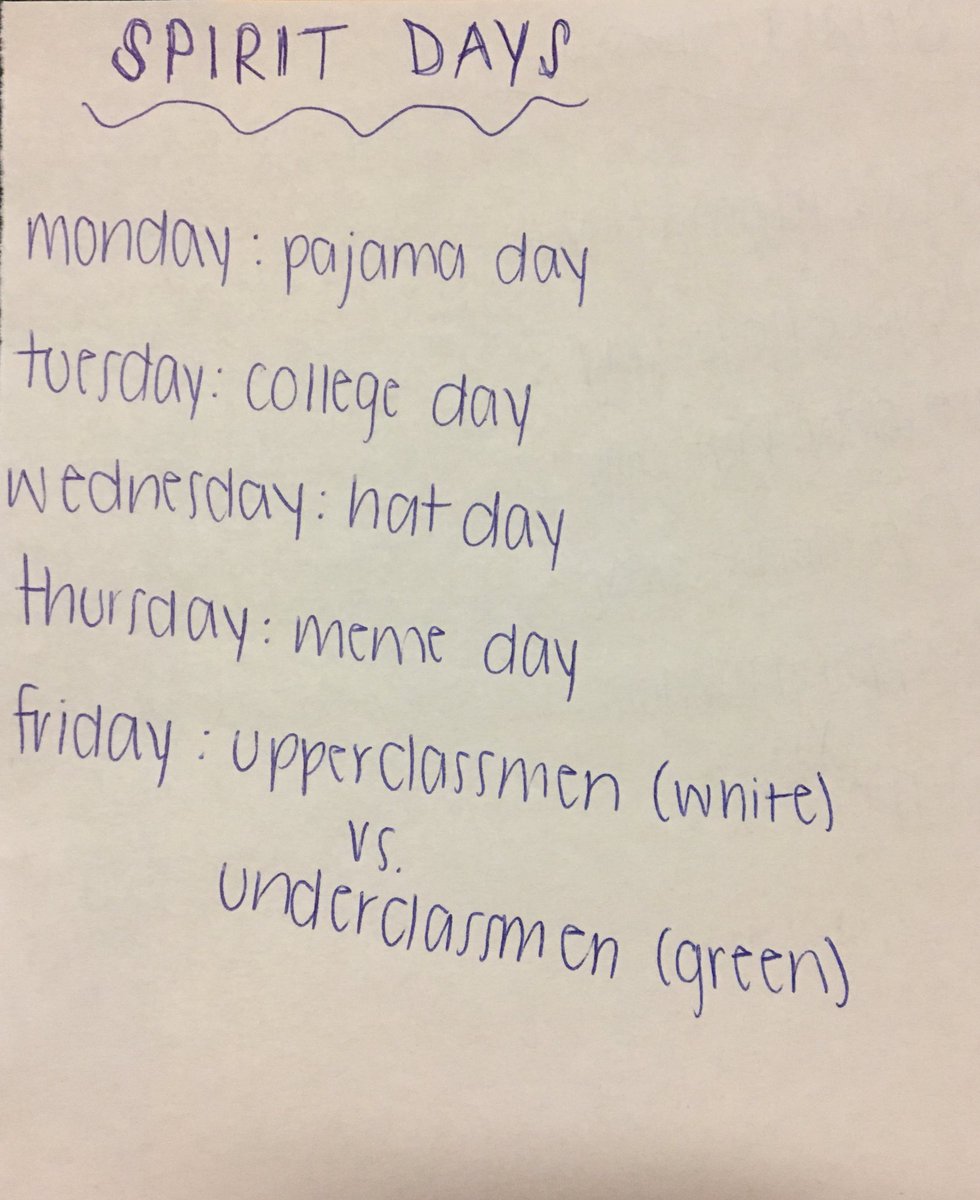 SPIRIT DAYS
monday: pajama day
tuesday: college day
wednesday: hat day
thursday: meme day
friday: upperclassmen (white)
vs.
underclassmen (green)